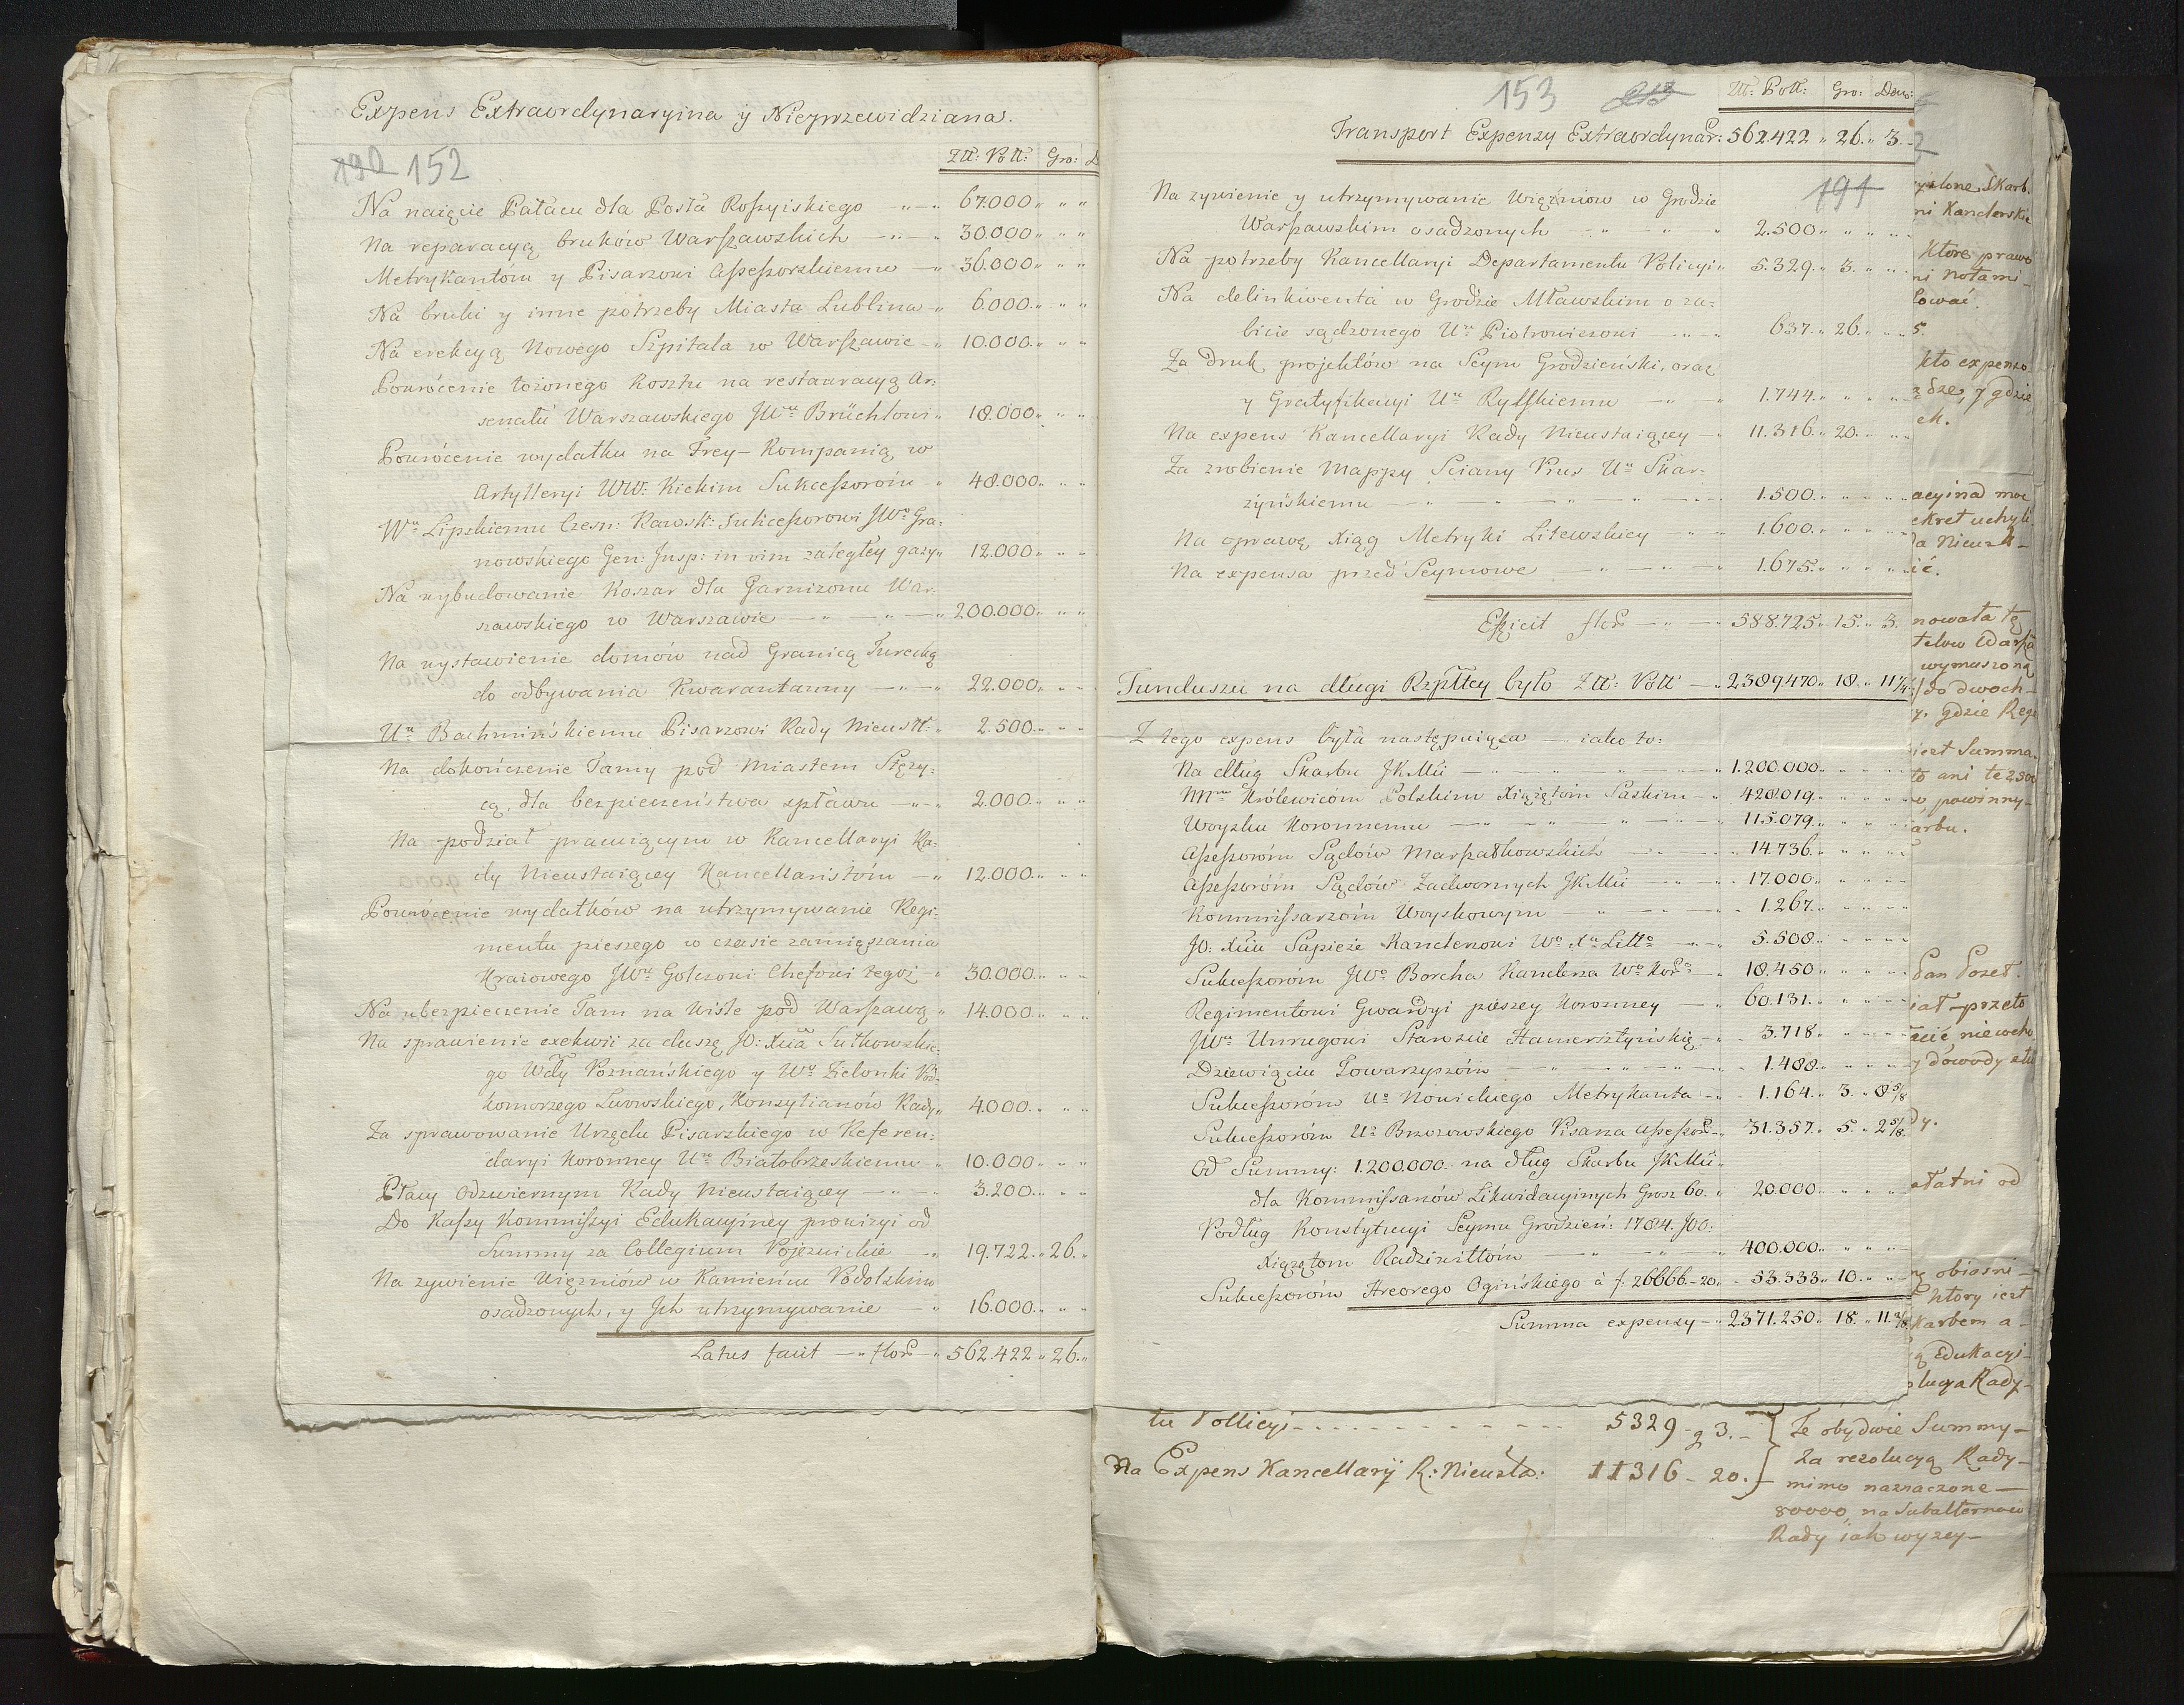 Expens Extraordynaryina ÿ Nieprzewidziana.
190 152
Ztt: Poll: Gro: D
Na naięcie Pałacu dla Posła Roſsyiskiego 67.000
Na reparacyą bruków Warſzawskich 30.000
Metrykantom y Pisarzowi Aſseſsorskiemu 36.000
Na bruki y inne potrzeby Miasta Lublina 6.000
Na erekcyą Nowego Szpitala w Warſzawie 10.000
Powrócenie łożonego Kosztu na restauracyą Ar:
senału Warszawskiego JWu Brüchlowi 18.000
Powrócenie wydatku na Frey-Kompanią w
Artylleryi WW: Kickim Sukceſsorom 48.000
Wu Lipskiemu Czesn: Rawsk: Sukceſsorowi JWo Gra:
nowskiego Gen: Jnsp: in vim zaległey gaży 12.000
Na wybudowanie Koszar dla Garnizonu War:
szawskiego w Warszawie 200.000
Na wystawienie domów nad Granicą Turecką
do odbywania Kwarantanny 22.000
Uu Bachmińskiemu Pisarzowi Rady Nieustt: 2.500
Na dokończenie Tamy pod Miastem Stęży:
cą, dla bezpieczeństwa spławu 2.000
Na podział pracuiącym w Kancellaryi Ra:
dy Nieustaiącey Kancellaristom 12.000
Powrócenie wydatków na utrzymywanie Regi:
mentu pieszego w czasie zamięszania
Kraiowego JWu Golczowi Chefowi tegoż 30.000
Na ubezpieczenie Tam na Wiśle pod Warſzawą 14.000
Na sprawienie exekwii za duszę JO: Xcia Sułkowskie:
go Wdy Poznańskiego y Wo Zielonki Pod:
komorzego Lwowskiego, Konsyliarzów Rady 4.000
Za sprawowanie Urzędu Pisarskiego w Referen:
daryi Koronney Uu Białobrzeskiemu 10.000
Płacy Odzwiernym Rady Nieustaiącey 3.200
Do Kaſsy Kommiſsyi Edukacyiney prowizyi od
Summy za Collegium Pojezuickie 19.722. 26.
Na żywienie Więzniów w Kamieńcu Podolskim
osadzonych, y Jch utrzymywanie 16.000
Latus facit flor 562.422 26.
153
Ztt: Poll: Gro: Den:
Transport Expensy Extraordynar: 562.422 26. 3.
191
Na żywienie y utrzymywanie Więzniow w Grodzie
Warſzawskim osadzonych 2.500
Na potrzeby Kancellaryi Departamentu Policyi 5.329. 3.
Na delinkwenta w Grodzie Mławskim o za:
bicie sądzonego Uu Piotrowiczowi 637. 26.
Za druk projektów na Seym Grodzieński, oraz
y Gratyfikacyi Uu Rylskiemu 1.744.
Na expens Kancellaryi Rady Nieustaiącey 11.316. 20.
Za zrobienie Mappy Sciany Prus Uu Skar:
żyńskiemu 1.500.
Na oprawę Xiąg Metryki Litewskiey 1.600.
Na expensa przed Seymowe 1.675.
Efficit flor 588.725. 15. 3.
Funduszu na długi Rzpltey było Ztt: Poll 2389470. 18. 11
Z tego expens była następuiąca iako to:
Na dług Skarbu JKMci 1.200.000.
NNm Królewicom Polskim Xiążętom Saskim 428.019.
Woysku Koronnemu 115.079.
Aſseſsorom Sądów Marſzałkowskich 14.736.
Aſseſsorom Sądów Zadwornych JKMci 17.000.
Kommiſsarzom Woyskowym 1.267.
JO: Xciu Sapieże Kanclerzowi Wo Xa Litto 5.508.
Sukceſsorom JWo Borcha Kanclerza Wo Koro 18.450
Regimentowi Gwardyi pieszey Koronney 60.131.
JWu Unrugowi Staroście Hamersztyńskię 3.718
Dziewięciu Towarzyszom 1.488.
Sukceſsorom Uo Nowickiego Metrykanta 1.164. 3. 8 5/8
Sukceſsorom Uo Brzozowskiego Pisarza Aſseſsor 31.357. 5. 2 5/8.
Od Summy: 1.200.000. na dług Skarbu JKMci
dla Kommiſsarzow Likwidacyinych Grosz 60. 20.000.
Podług Konstytucyi Seymu Grodzień: 1784. JOO:
Xiążętom Radziwiłłom 400.000.
Sukceſsorom Hreorego Ogińskiego à f: 26666.-20. 53.333. 10.
Summa expensy 2371.250. 18. 11.
tu Pollicyi 5329 g 3.
Na Expens Kancellaryi R: Nieusta: 11316 - 20.
Te obydwie Summy
Za rezolucyą Rady
mimo naznaczone
80000, na Subalternow
Rady iak wyżey
Skarb.
ni Kanclerskie
ktore prawo
ni notami
łować.
5.
kto expenso
dze, y gdzie
ek.
acyina moc
ekret uchyli
da Nieust
ić.
nowała tę
wymuszoną
do dwoch
y. gdzie Regi
iest Summa
to ani te 2500
powinny
arbu.
Pan Poseł.
iał przeto
y dowody
y.
atatni od
obiaśni
ktory iest
karbem a
Edukacyi
lucya Rady